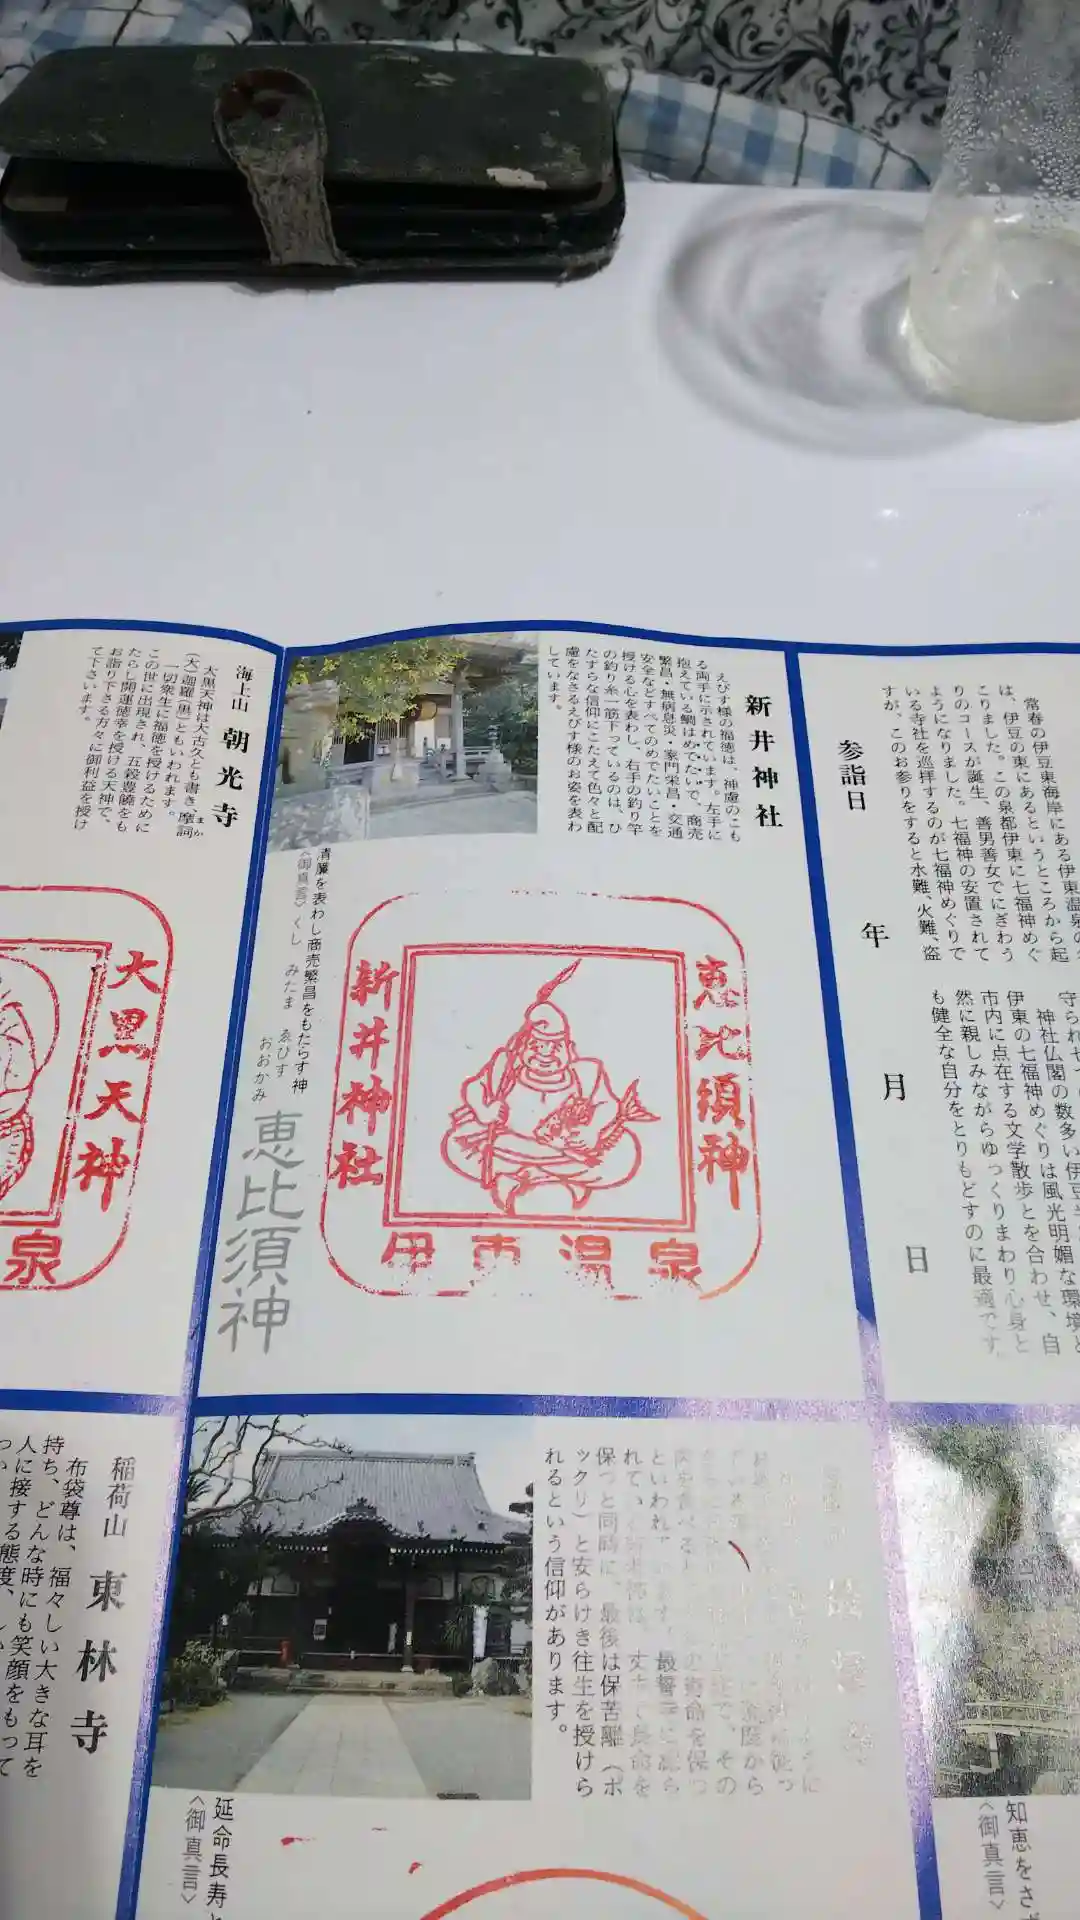 常春の伊豆東海岸にある伊東温泉の
は、伊豆の東にあるというところから起
こりました。この泉都伊東に七福神めぐ
りのコースが誕生、善男善女でにぎわう
ようになりました。七福神の安置されて
いる寺社を巡拝するのが七福神めぐりで
すが、このお参りをすると水難、火難、盗
守られ
神社仏閣の数多い伊豆
伊東の七福神めぐりは風光明媚な環境と
市内に点在する文学散歩とを合わせ、自
然に親しみながらゆっくりまわり心身と
も健全な自分をとりもどすのに最適です。
参詣日 年 月 日
新井神社
えびす様の福徳は、神慮のこも
る両手に示されています。左手に
抱えている鯛はめでたいで、商売
繁昌・無病息災・家門栄昌・交通
安全などすべてのめでたいことを
授ける心を表わし、右手の釣り竿
の釣り糸一筋下っているのは、ひ
たすらな信仰にこたえて色々と配
慮をなさるえびす様のお姿を表わ
しています。
清廉を表わし商売繁昌をもたらす神
〈御真言〉くし みたま ゑびす おおかみ
恵比須神
恵比須神
新井神社
伊東温泉
海上山 朝光寺
大黒天神は大古久とも書き、摩訶
まか
(大)迦羅(黒)ともいわれます。
一切衆生に福徳を授けるために
この世に出現され、五穀豊饒をも
たらし開運徳幸を授ける天神で、
お詣り下さる方々に御利益を授け
て下さいます。
大黒天神
泉
知恵をさ
〈御真言〉
保つと同時に、最後は保苦離(ポ
ックリ)と安らけき往生を授けら
れるという信仰があります。
延命長寿
〈御真言〉
稲荷山 東林寺
布袋尊は、福々しい大きな耳を
持ち、どんな時にも笑顔をもって
人に接する態度、